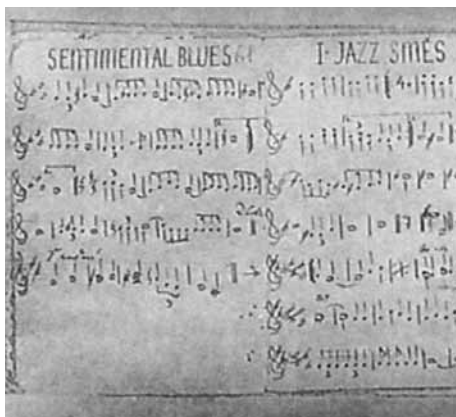 SENTIMENTAL BLUES
I. JAZZ SMÉS